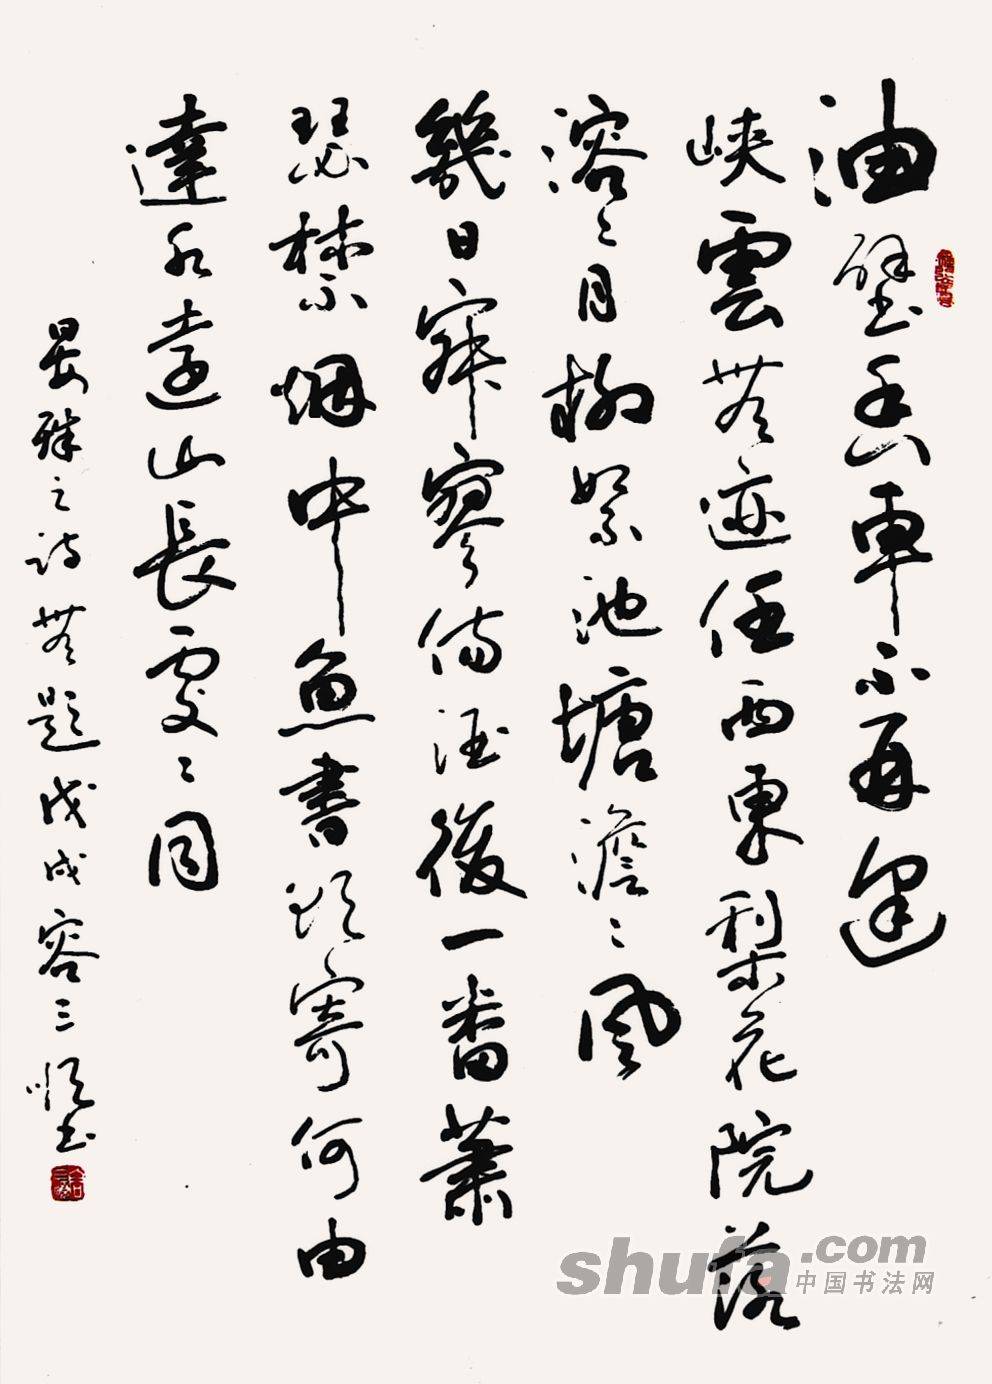 油壁香車不再逢
峽雲無迹任西東梨花院落
溶〻月柳絮池塘澹〻風
幾日寂寥傷酒後一番蕭
瑟禁烟中魚書欲寄何由
達水遠山長處〻同
晏殊之詩無題戊戌容三順書
shufa.com
中国书法网